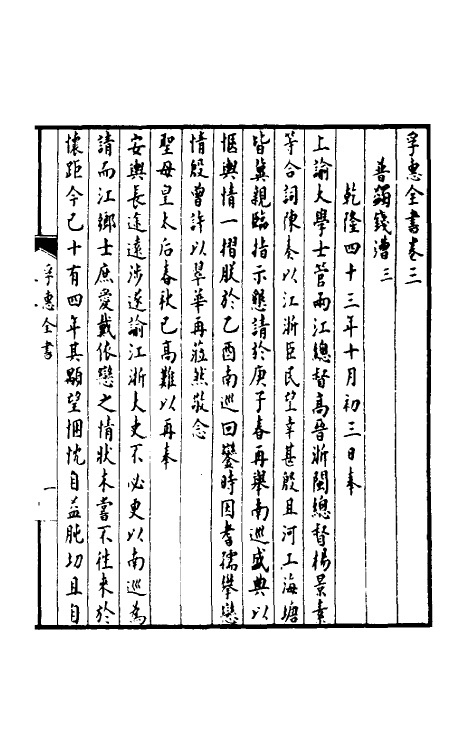 孚惠全書卷三
普蠲錢漕三
乾隆四十三年十月初三日奉
上諭大學士管兩江總督高晉浙閩總督楊景素
等合詞陳奏以江浙臣民望幸甚殷且河工海塘
皆冀親臨指示懇請於庚子春再舉南巡盛典以
愜輿情一摺朕於乙酉南巡回鑾時因耆孺攀戀
情殷曾許以翠華再蒞然敬念
聖母皇太后春秋已高難以再奉
安輿長途遠涉遂諭江浙大吏不必更以南巡為
請而江鄉士庶愛戴依戀之情狀未嘗不往來於
懷距今已十有四年其顒望悃忱自益肫切且自
孚惠全書
一